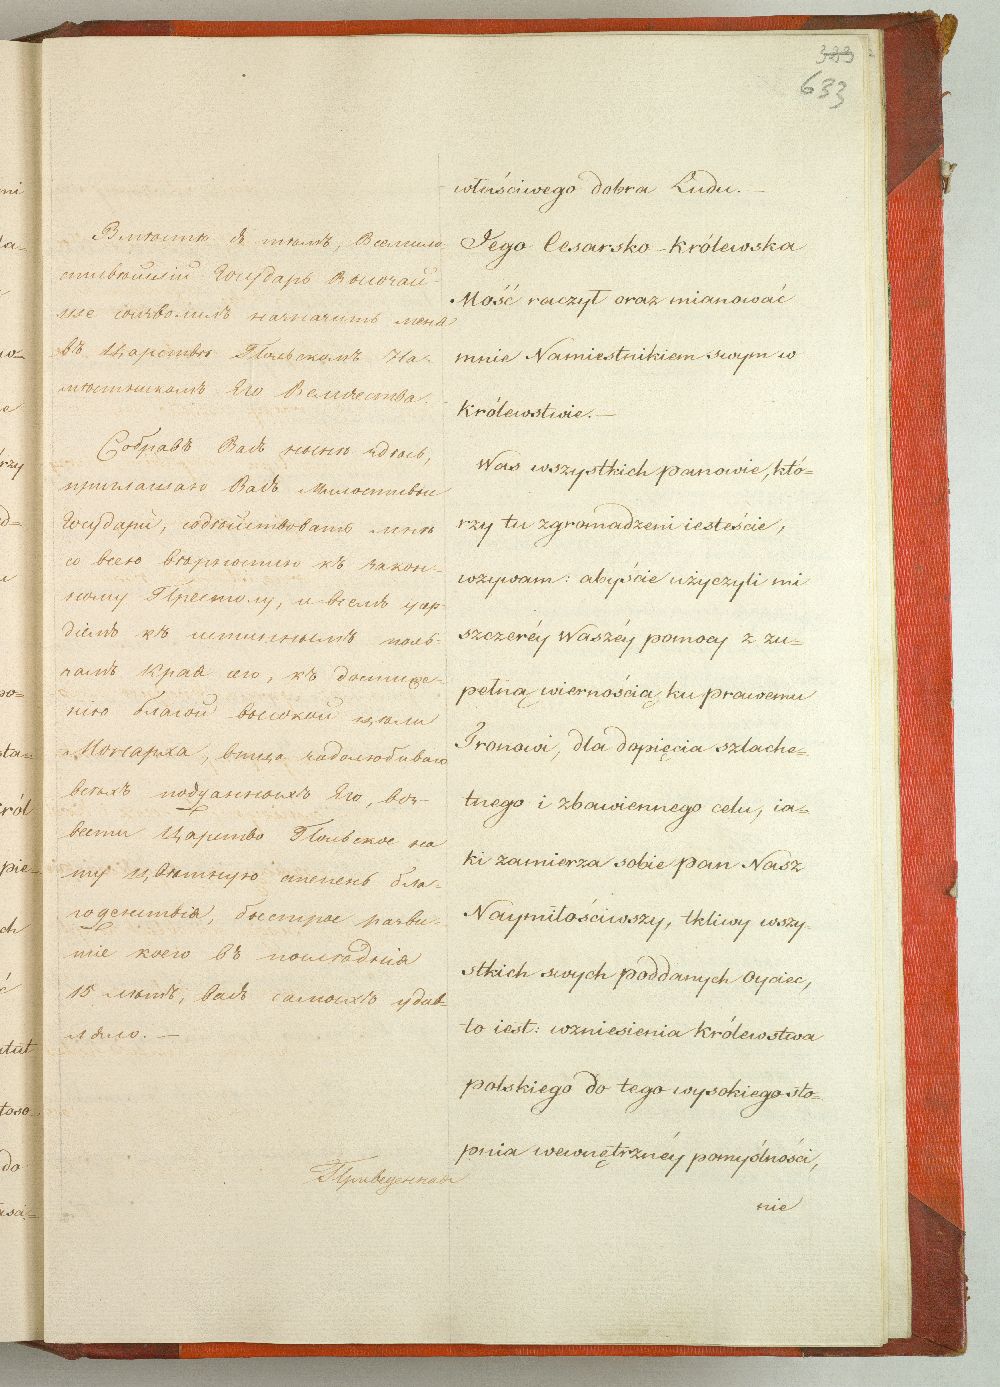 333
633
Вмѣстѣ съ тѣмъ, Всемило-
стивѣйшій Государь Высочай-
ше соизволилъ назначить меня
въ Царствѣ Польскомъ На-
мѣстникомъ Его Величества.
Собравъ Васъ нынѣ здѣсь,
приглашаю Васъ Милостивые
Государи, содѣйствовать мнѣ
со всею вѣрностію къ закон-
ному Престолу, и всемъ усер-
діемъ къ истиннымъ поль-
замъ Края сего, къ достиже-
нію благой высокой цѣли
Монарха, отца чадолюбиваго
всѣхъ подданныхъ Его, воз-
вести Царство Польское на
ту цвѣтную степень бла-
годенствія, быстрое разви-
тіе коего въ послѣднія
15 лѣтъ, васъ самыхъ удив-
ляло. —
Приведенная
właściwego dobra Ludu. —
Jego Cesarsko-Królewska
Mość raczył oraz mianować
mnie Namiestnikiem swym w
Królewstwie. —
Was wszystkich panowie, któ=
rzy tu zgromadzeni iesteście,
wzywam: abyście użyczyli mi
szczeréy Waszéy pomocy z zu=
pełną wiernością ku prawemu
Tronowi, dla dopięcia szlache=
tnego i zbawiennego celu, ia=
ki zamierza sobie pan Nasz
Naymiłościwszy, tkliwy wszy-
stkich swych poddanych Oyciec,
to iest: wzniesienia Królewstwa
polskiego do tego wysokiego sto=
pnia wewnętrznéy pomyślności,
nie